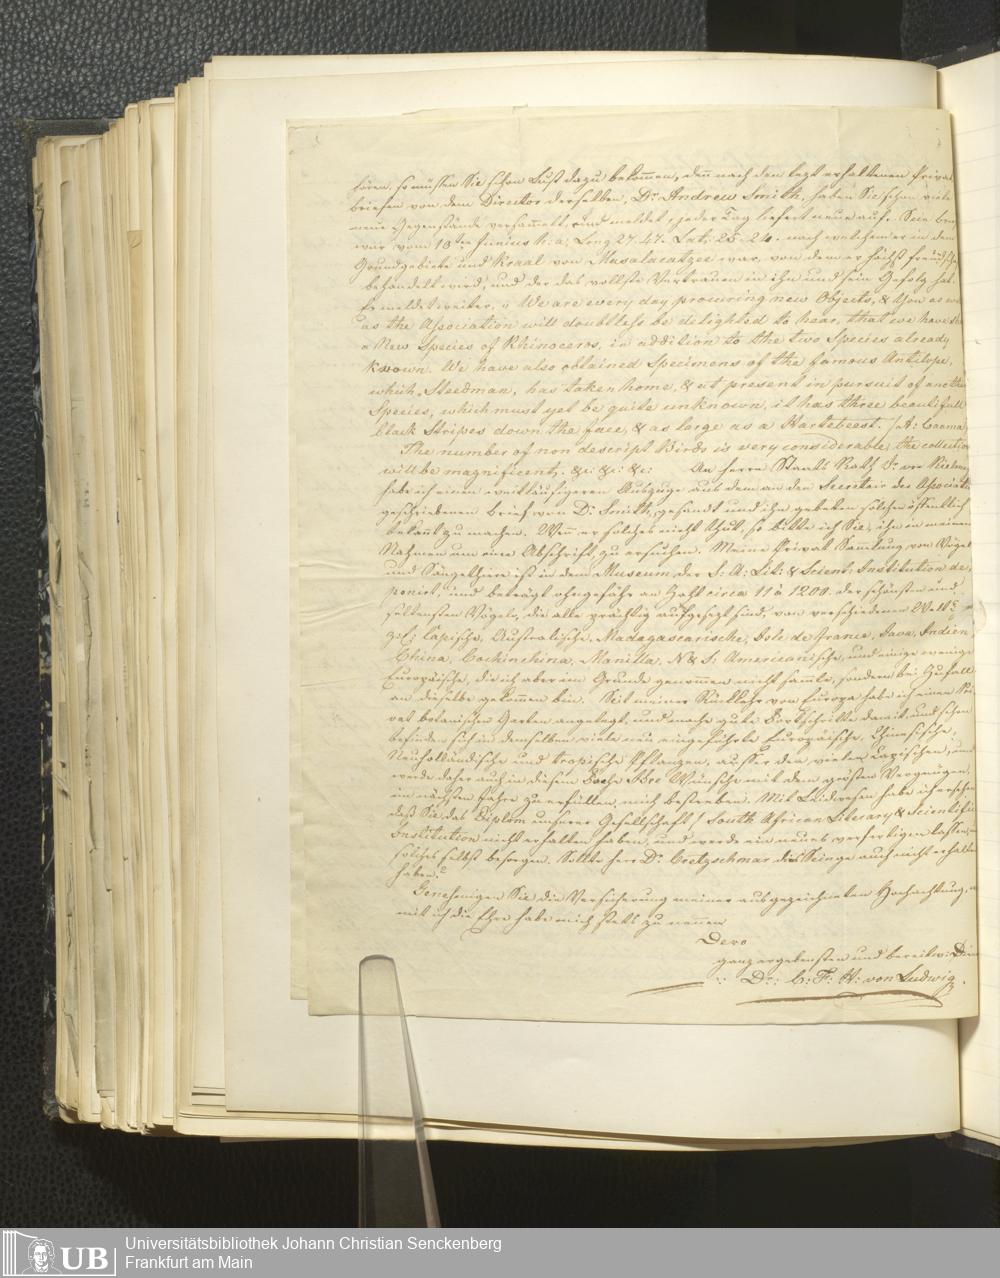 hören, so müssen Sie schon Lust dazu bekommen, denn nach den letzt erhaltenen Privat
briefen von dem Director derselben, Dr. Andrew Smith, haben Sie schon viele
neue Gegenstände versammelt, und meldet, jeder Tag liefert neue auf. Sein brief
war vom 18ten Junius h: a: Long 27.47. Lat: 25-24. nach welchem er in dem
Grundgebiete und Kraal von Masalacatzee war, von dem er höchst freundsch
behandelt wird, und der das vollste Vertrauen in ihn und sein Gefolg hat.
Er meldet weiter, "We are every day procuring new Objects, & You as well
as the Association will doubtless be delighted to hear, that we have
a New Species of Rhinoceros, in addition to the two Species already
known. We have also obtained Specimens of the famous Antilope,
which, Steedman, has taken home, & at present in pursuit of another
Species, which must yet be quite unknown, it has three beautifull
black Stripes down the face, & as large as a Hartebeest. /A: Caama
The number of non descript Birds is very considerable, the collection
will be magnificent. &c: &c: &c: An Herrn Staats Rath
habe ich einen weitläufigeren Auszuge aus dem an den Secretair der Associat
geschriebenen brief von Dr. Smith, gesandt und ihn gebeten solchen öffentlich
bekannt zu machen. Wenn er solches nicht thut, so bitte ich Sie, ihn in meinem
Nahmen um eine Abschrift, zu ersuchen. Meine Privat Sammlung von Vögel
und Säugethiere ist in dem Museum der S: A: Lit: & Scient: Institution de,
ponirt, und beträgt ohngefähr an Zahl circa 11 à 1200. der schönsten und
seltensten Vögeln, die alle prächtig aufgesezt sind, von verschiedenen
z: E: Capische, Australische, Madagascarische, Isle de france, Java, Indien,
China, Cochinchina, Manilla, N & S: Americanische, und einige wenige
Europäische, die ich aber im Grunde genommen nicht sammle, sondern bei Zufall
an dieselbe gekommen bin. Seit meiner Rückkehr von Europa habe ich einen Pri
vat botanischen Garten angelegt, und mache gute Fortschritte damit, und schon
befinden sich in demselben viele neu eingeführte Europäische, Chinesische,
Neuholländische und tropische Pflanzen, ausser den vielen Capischen, und
werde daher auch in diesem Fache Ihre Wünsche mit dem grösten Vergnügen,
im nächsten Jahre zu erfüllen, mich bestreben. Mit Leidwesen habe ich ersehen
daß Sie das Diplom unserer Gesellschaft / South African Literary & Scientific
Institution nicht erhalten haben, und werde ein neues verfertigen lassen,
solches selbst besorgen. Sollte Herr Dr. Cretzschmar das Seinige auch nicht erhalten
haben?
Genehmigen Sie die Versicherung meiner ausgezeichneten Hochachtung,
mit ich die Ehre habe mich stets zu nennen
Dero
ganz ergebensten und bereitw:
Dr: C: F: H: von Ludwig.
UB
Universitätsbibliothek Johann Christian Senckenberg
Frankfurt am Main